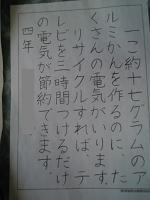 一こ約十七グラムのア
ルミかんを作るのに、た
くさんの電気がいります。
リサイクルすれば、テ
レビを三時間つけるだけ
の電気が節約できます。
四年